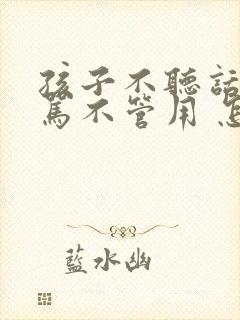 孩子不聽話
罵不管用
藍水幽